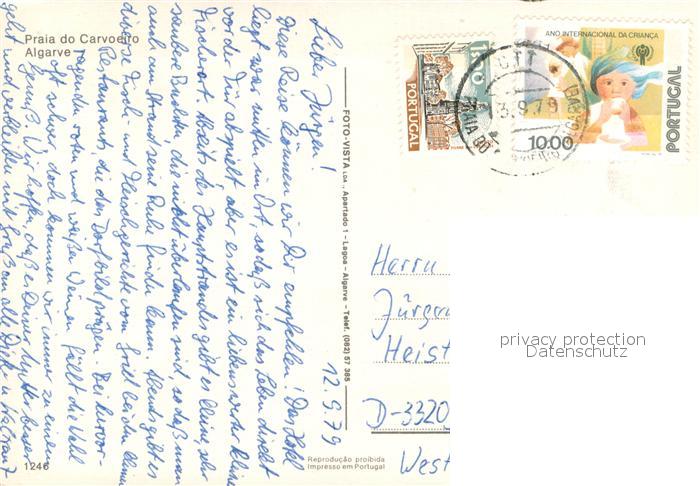 Praia do Carvoeiro
Algarve
12.9.79
Liebe Jürgen!
Diese Reise können wir Dir empfehlen! Das Hotel
liegt zwar mitten im Ort, sodaß sich das Leben direkt
vor der Tür abspielt, aber es ist ein liebenswerter kleiner
Fischerort. Abseits des Hauptstrandes gibt es kleine, sehr
saubere Buchten, die nicht überlaufen sind, so daß man
auch am Strand seine Ruhe finden kann. Abends gibt es
diverse Fisch- und Fleischgerichte vom Grill bei den kleinen
Restaurants, die das Dorfbild prägen. Bei hervor-
ragenden roten und weißen Weinen fällt die Wahl
oft schwer, doch kommen wir immer zu einem
Genuß. Wir hoffen, daß es Dir
geht und verbleiben mit Gruß an alle
1246
FOTO-VISTA LDA., Apartado 1 - Lagoa - Algarve - Telef. (082) 57 365
Reprodução proibida
Impresso em Portugal
PORTUGAL
ANO INTERNACIONAL DA CRIANÇA
10.00
PORTUGAL
CTT
13.9.79
PRAIA DO
Herrn
Jürgen
Heist
D-3320
West
privacy protection
Datenschutz